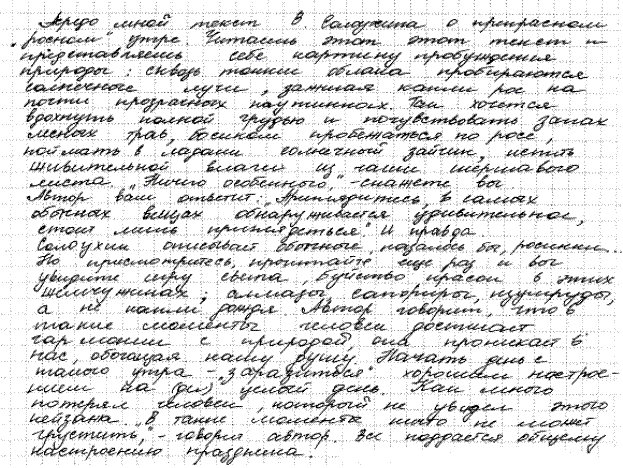 Предо мной текст В Солоухина о прекрасном
„росном“ утре. Читаешь этот этот текст и
представляешь себе картину пробуждения
природы: сквозь тонкие облака пробираются
солнечные лучи, зажигая капли рос на
почти прозрачных паутинках. Так хочется
вдохнуть полной грудью и почувствовать запах
лесных трав, босиком пробежаться по росе,
поймать в ладони солнечный зайчик, испить
живительной влаги из чаши шершавого
листа. „Ничего особенного,“ - скажете вы.
Автор вам ответит: „Приглядитесь, в самых
обычных вещах обнаруживается удивительное,
стоит лишь приглядеться“ И правда.
Солоухин описывает обычные, казалось бы, росинки...
Но присмотритесь, прочитайте еще раз и вы
увидите игру света, буйство красок в этих
жемчужинах, алмазы сапфиры, изумруды,
а не капли дождя. Автор говорит, что в
такие моменты человек достигает
гармонии с природой, она проникает в
нас, обогащая нашу душу. Начать день с
такого утра - „заразиться“ хорошим настрое-
нием на (ди) целый день. Как много
потерял человек, который не увидел этого
пейзажа. „В такие момента никто не может
грустить,“ - говорит автор. Все поддается общему
настроению праздника.